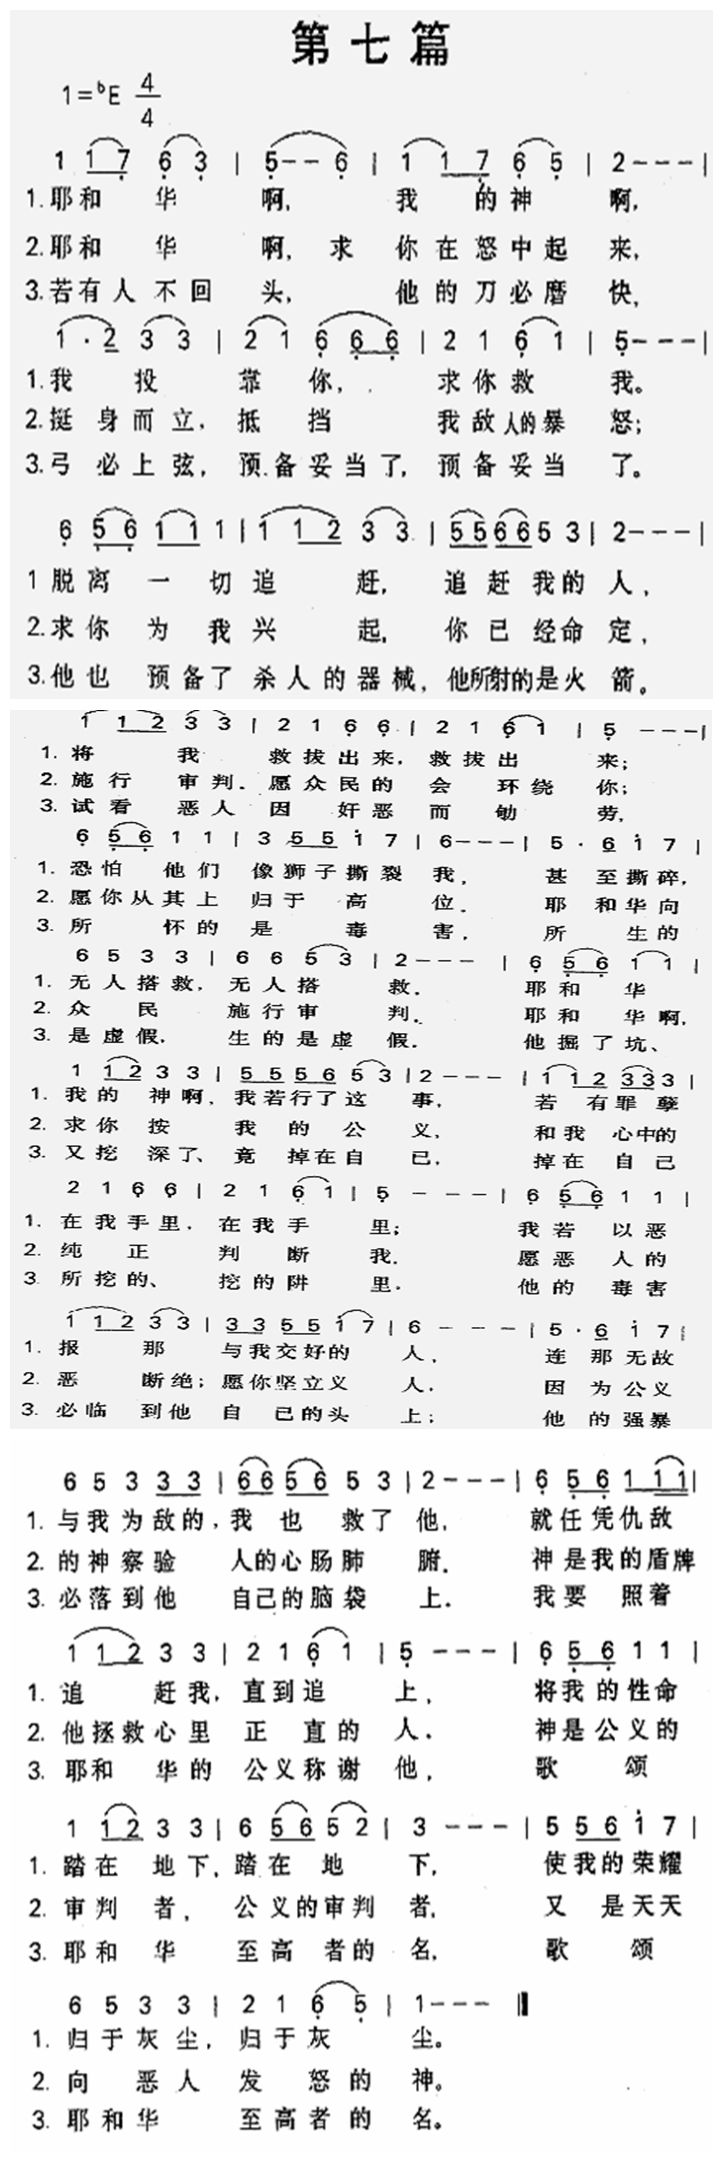 第七篇
1=♭E 4/4
1 1 7 6 3 | 5 - - 6 | 1 1 7 6 5 | 2 - - - |
1.耶和 华 啊, 我 的神 啊,
2.耶和 华 啊, 求 你在怒中起 来,
3.若有人不回 头, 他的刀必磨 快,
1 · 2 3 3 | 2 1 6 6 6 | 2 1 6 1 | 5 - - - |
1.我 投 靠 你, 求你救 我。
2.挺身而立, 抵 挡 我敌人的暴 怒;
3.弓必上弦, 预备妥当了, 预备妥当 了。
6 5 6 1 1 1 | 1 1 2 3 3 | 5 5 6 6 5 3 | 2 - - - |
1 脱离 一 切追 赶, 追赶我的 人,
2.求你 为 我兴 起, 你已经命 定,
3.他也 预备了 杀人的器械, 他所射的是火 箭。
1 1 2 3 3 | 2 1 6 6 | 2 1 6 1 | 5 - - - |
1.将 我 救拔出来, 救拔出 来;
2.施行 审判. 愿众民的 会 环绕 你;
3.试看 恶人 因 奸恶 而 劬 劳,
6 5 6 1 1 | 3 5 5 1 7 | 6 - - - | 5 · 6 1 7 |
1.恐怕 他们 像狮子撕裂 我, 甚 至撕碎,
2.愿你从其上 归于 高 位. 耶 和华向
3.所 怀的 是 毒 害, 所 生的
6 5 3 3 | 6 6 5 3 | 2 - - - | 6 5 6 1 1 |
1.无人搭救, 无人搭 救. 耶和 华
2.众 民 施行审 判. 耶和 华啊,
3.是虚假, 生的是虚 假. 他掘了坑、
1 1 2 3 3 | 5 5 5 6 5 3 | 2 - - - | 1 1 2 3 3 3 |
1.我的 神啊, 我若行了这 事, 若 有罪孽
2.求你 按 我 的 公 义, 和我 心中的
3.又挖 深了、竟 掉在自 已, 掉在 自己
2 1 6 6 | 2 1 6 1 | 5 - - - | 6 5 6 1 1 |
1.在我手里. 在我手 里; 我若 以恶
2.纯 正 判 断 我. 愿恶 人的
3.所挖的、 挖的阱 里. 他的 毒害
1 1 2 3 3 | 3 3 5 5 1 7 | 6 - - - | 5 · 6 1 7 |
1.报 那 与我交好的 人, 连那无故
2.恶 断绝; 愿你坚立义 人. 因 为公义
3.必临 到他 自 己的头 上; 他 的强暴
6 5 3 3 3 | 6 6 5 6 5 3 | 2 - - - | 6 5 6 1 1 1 |
1.与我为敌的,我 也 救了 他, 就任凭仇敌
2.的神察验 人的心肠肺 腑. 神是我的盾牌
3.必落到他 自己的脑袋 上. 我要 照着
1 1 2 3 3 | 2 1 6 1 | 5 - - - | 6 5 6 1 1 |
1.追 赶我, 直到追 上, 将我的性命
2.他拯救心里 正 直的 人. 神是公义的
3.耶和 华的 公义称谢 他, 歌 颂
1 1 2 3 3 | 6 5 6 5 2 | 3 - - - | 5 5 6 1 7 |
1.踏在 地下, 踏在 地 下, 使我的荣耀
2.审判 者, 公义的审判 者, 又 是天天
3.耶和 华 至高 者的 名, 歌 颂
6 5 3 3 | 2 1 6 5 | 1 - - - ‖
1.归于灰尘, 归于灰 尘。
2.向 恶人 发 怒的 神。
3.耶和华 至高者的 名。